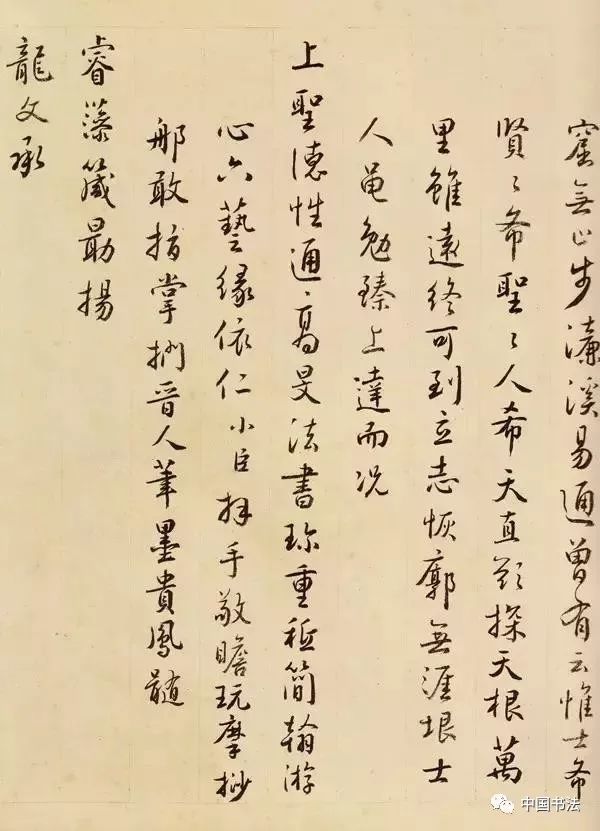 窟無止步濂溪易通曾有云惟士希
賢〻希聖〻人希天直欲探天根萬
里雖遠終可到立志恢廓無涯垠士
人黽勉臻上達而况
上聖德性通高旻法書珍重祗簡翰游
心六藝緣依仁小臣拜手敬瞻玩摩挱
那敢指掌捫晉人筆墨貴鳳髓
睿藻箴勗揚
龍文承
中国书法